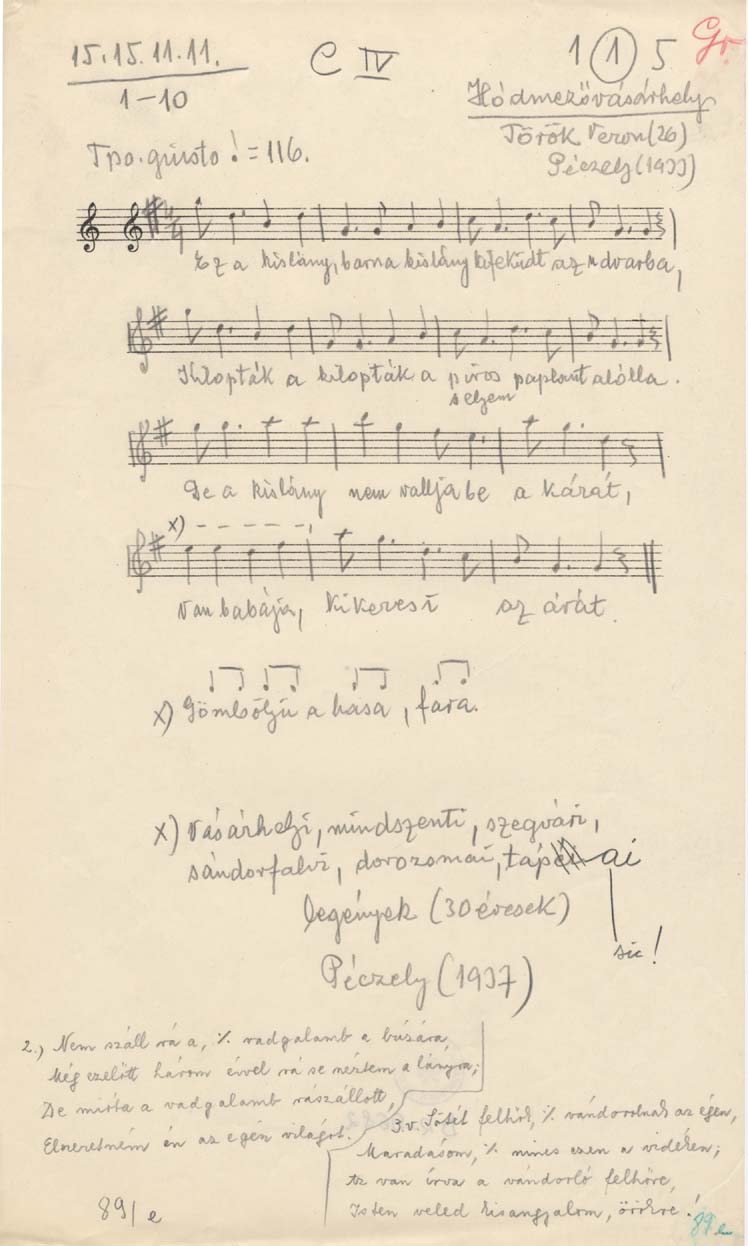 15.15.11.11.
1-10
C IV
1 1 5
Gr.
Hódmezővásárhely
Török Veron (26)
Péczely (1933)
Tpo. giusto ♩ = 116.
Ez a kislány, barna kislány kifeküdt az udvarba,
Kilopták a kilopták a piros paplant alólla.
selyem
De a kislány nem vallja be a kárát,
x)
Van babája, kikeresi az árát.
x) Gömbölyű a hasa, fara.
x) Vásárhelyi, mindszenti, szegvári,
sándorfalvi, dorozsmai, tápai
legények (30 évesek)
sic!
Péczely (1937)
2.) Nem száll rá a, ٪ vadgalamb a búzára,
Még ezelőtt három évvel rá se néztem a lányra;
De mióta a vadgalamb rászállott,
Elszeretném én az egész világot.
3.v. Sötét felhők, ٪ vándorolnak az égen,
Maradásom, ٪ nincs ezen a vidéken;
Az van írva a vándorló felhőre,
Isten veled kisangyalom, örökre!
89/e
89e